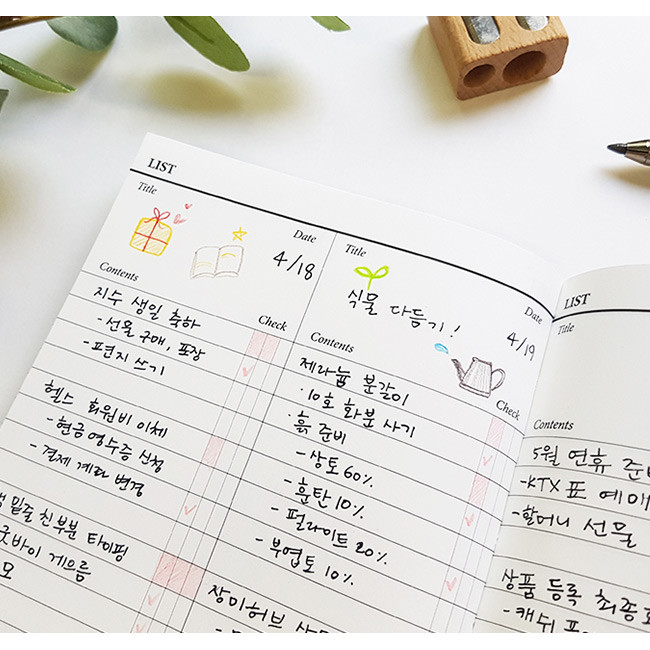 LIST
Title
Date
4/18
Contents
Check
지수 생일 축하
- 선물 구매, 포장
- 편지 쓰기
헬스 회원비 이체
- 현금영수증 신청
- 결제 계좌 변경
밑줄 친 부분 타이핑
굿바이 게으름
Title
식물 다듬기!
Date
4/19
Contents
Check
제라늄 분갈이
· 10호 화분 사기
· 흙 준비
- 상토 60%
- 훈탄 10%
- 펄라이트 20%
- 부엽토 10%
장미허브
LIST
Title
Contents
5월 연휴
-KTX 표 예매
-할머니 선물
상품 등록 최종
- 캐쉬